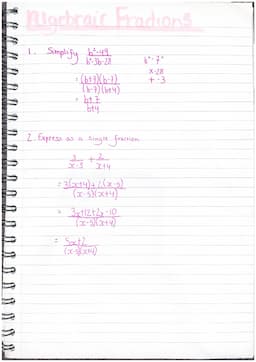 Algebraic Fractions
1. Simplify b²-49 / b²-3b-28
b² - 7²
x-28
+ -3
= (b+7)(b-7) / (b-7)(b+4)
= b+7 / b+4
2. Express as a single fraction
3 / x-5 + 2 / x+4
= 3(x+4)+2(x-5) / (x-5)(x+4)
= 3x+12+2x-10 / (x-5)(x+4)
= 5x+2 / (x-5)(x+4)